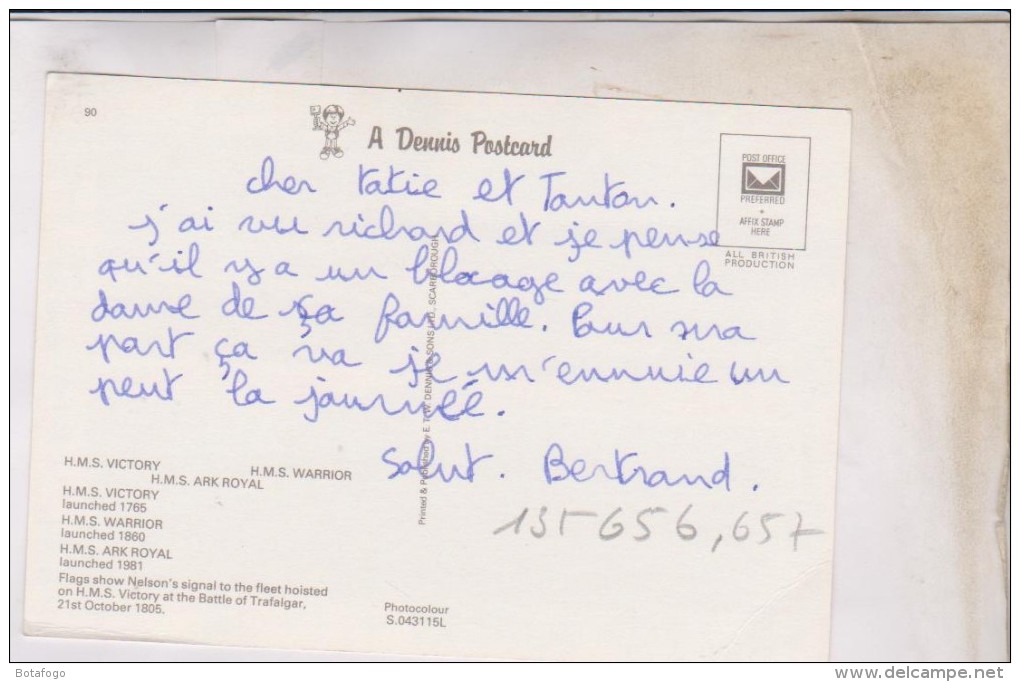 90
A Dennis Postcard
POST OFFICE
PREFERRED
AFFIX STAMP
HERE
ALL BRITISH
PRODUCTION
cher tatie et Tonton.
j'ai vu richard et je pense
qu'il y a un blocage avec la
dame de sa famille. Pour ma
part ça va je m'ennuie un
peut la journéé.
Salut. Bertrand.
135 656, 657
Printed & Published by E. T. W. DENNIS & SONS LTD., SCARBOROUGH
H.M.S. VICTORY
H.M.S. WARRIOR
H.M.S. ARK ROYAL
H.M.S. VICTORY
launched 1765
H.M.S. WARRIOR
launched 1860
H.M.S. ARK ROYAL
launched 1981
Flags show Nelson's signal to the fleet hoisted
on H.M.S. Victory at the Battle of Trafalgar,
21st October 1805.
Photocolour
S.043115L
Botafogo
www.delcampe.net